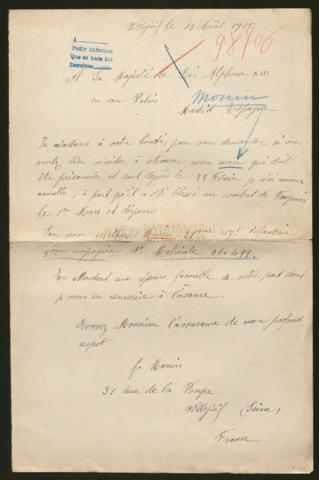 Villejuif le 13 Août 1915
98/06
A
Pedir informes
Que se hace Aci
Devolver
A Sa Majesté le Roi Alphonse XIII
en son Palais
Monin
Madrid Espagne
Je m'adresse à votre bonté, pour vous demander si vous
voulez bien m'aider à retrouver mon mari qui doit
être prisonnier et dont depuis le 28 Février je n'ai aucune
nouvelle, à part qu'il a été blessé au combat de Vauquois
le 1er Mars et disparu
Son nom Arthur Monin infanterie
5eme compagnie No Matricule 499
En attendant une réponse favorable de votre part dont
je vous en remercie à l'avance.
Recevez Monsieur l'assurance de mon profond
respect
f. Monin
38 rue de la Pompe
Villejuif (Seine)
France